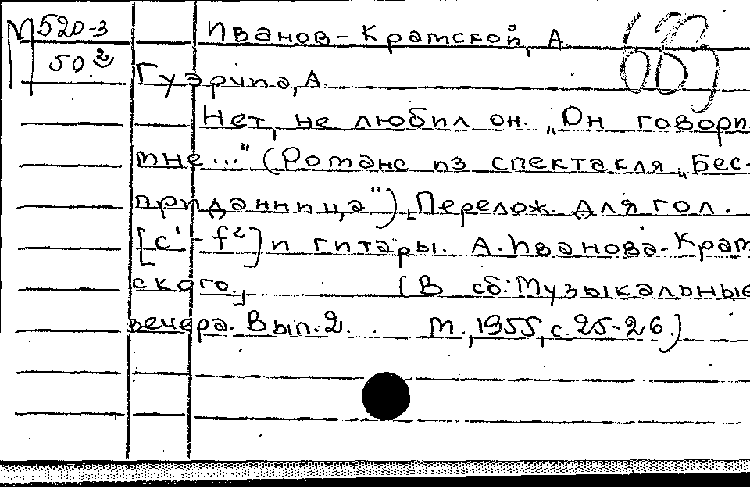 М520-3 Иванов-Крамской, А.
50² Гуэрчиа, А.
Нет, не любил он. "Он говорил
мне..." (Романс из спектакля "Бес-
приданница"). Перелож. для гол.
[c¹-f²] и гитары. А. Иванова-Крам
ского. (В сб: Музыкальные
вечера. Вып. 2. М., 1955, с. 25-26.)